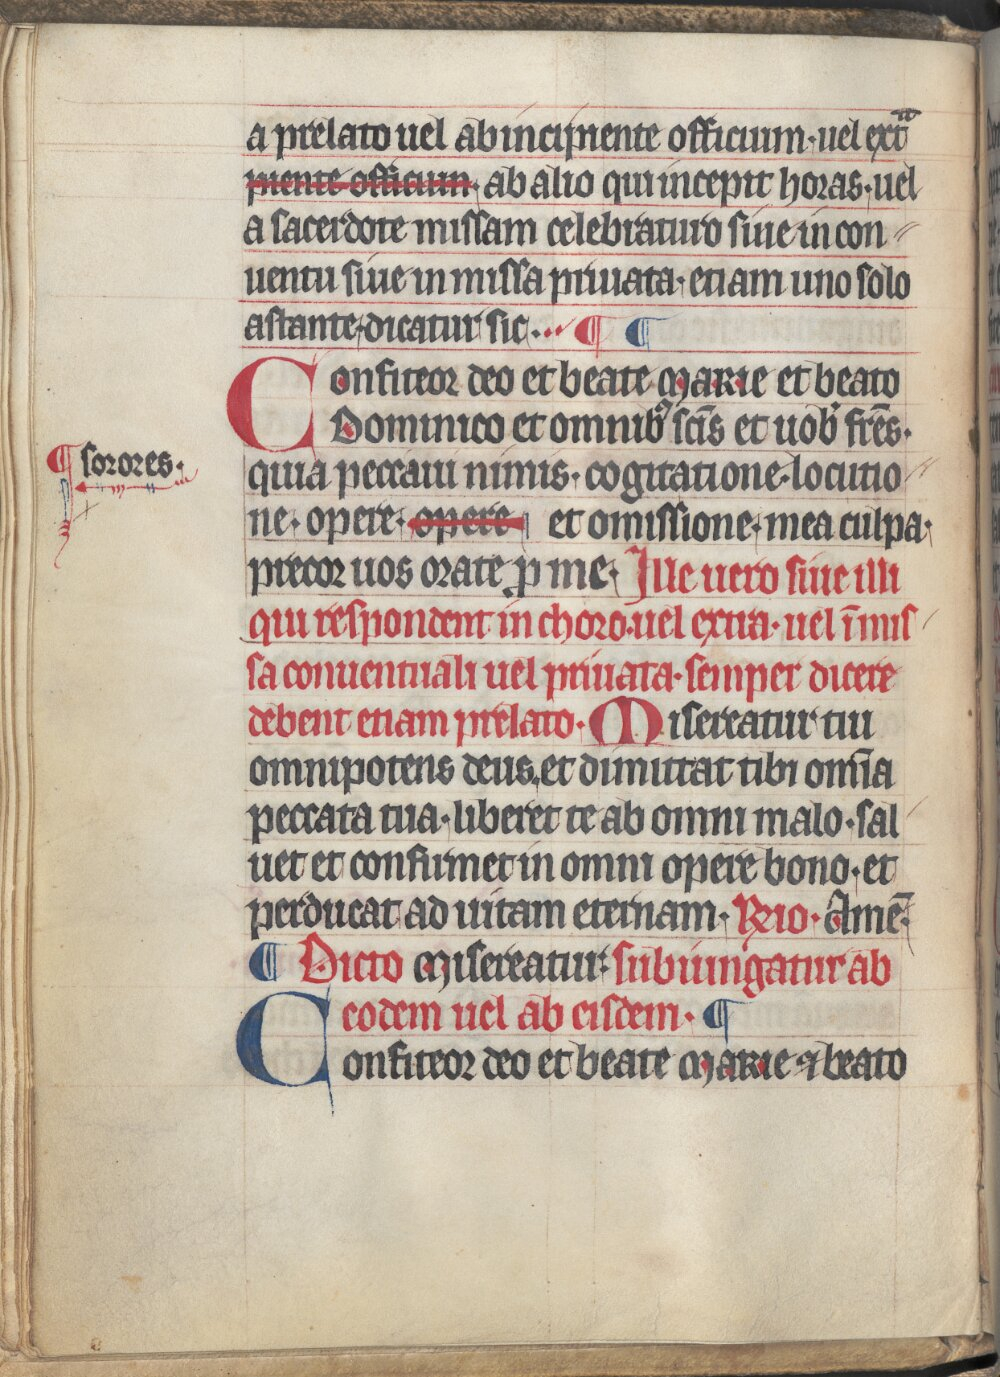 a prelato uel ab incipiente officium · uel extͣ
piente officium · ab alio qui incepit horas · uel
a sacerdote missam celebraturo siue in con
uentu siue in missa priuata · etiam uno solo
astante · dicatur sic ··· ¶ ¶
Confiteor deo et beate Marie et beato
Dominico et omnibꝰ sc̄is et uob̄ fr̄es ·
¶ sorores ·
quia peccaui nimis · cogitatione · locutio
ne · opere · opere et omissione · mea culpa ·
precor uos orate ꝑ me · Ille uero siue illi
qui respondent in choro · uel extra · uel ī mis
sa conuentuali uel priuata · semper dicere
debent etiam prelato · Misereatur tui
omnipotens deus et dimittat tibi om̄ia
peccata tua · liberet te ab omni malo · sal
uet et confirmet in omni opere bono · et
perducat ad uitam eternam · Rx̄io · Amē ·
¶ Dicto Misereatur · subiungatur ab
eodem uel ab eisdem · ¶
Confiteor deo et beate Marie ⁊ beato